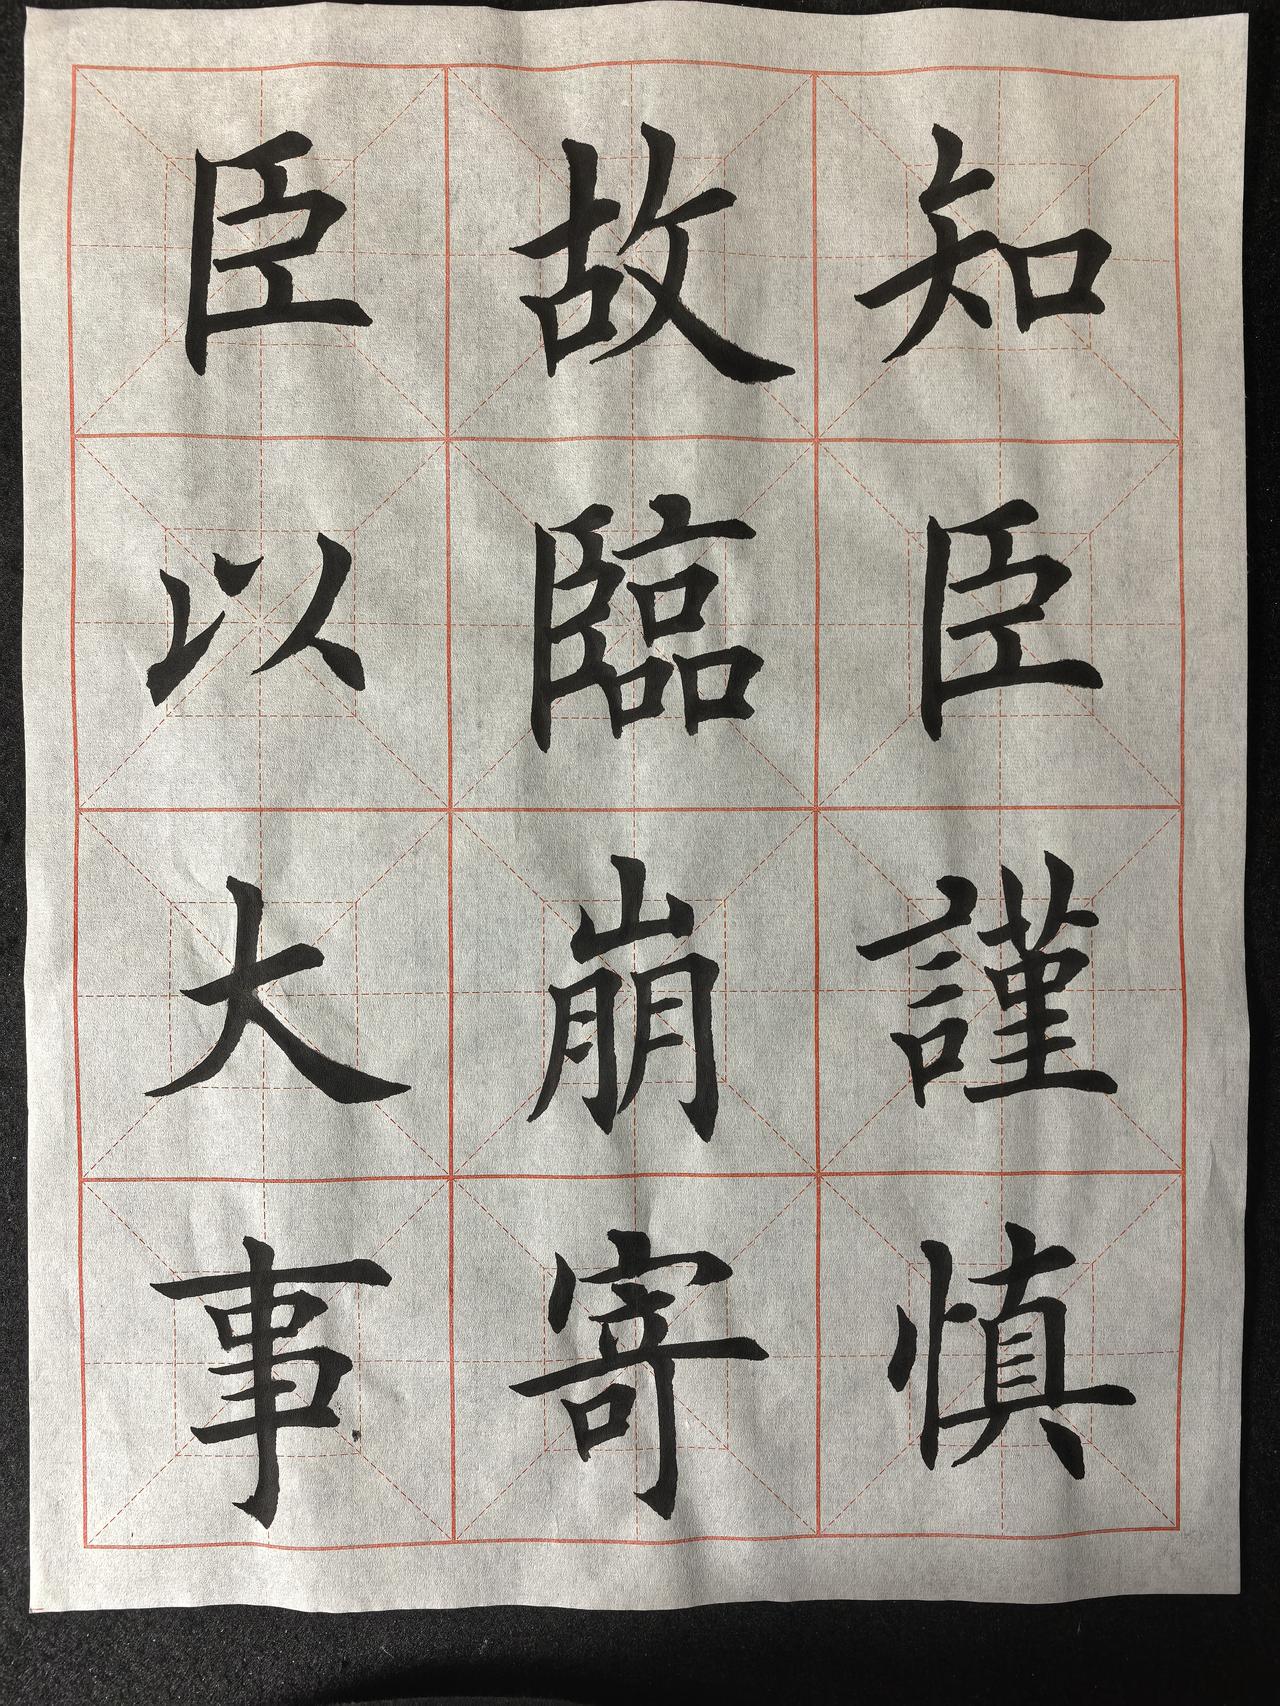 知臣謹慎
故臨崩寄
臣以大事